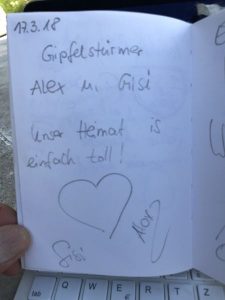 17.3.18
Gipfelstürmer
Alex u. Gisi
Unser Heimat is
einfach toll!
Gisi
Alex
tab Q W E R T Z
€